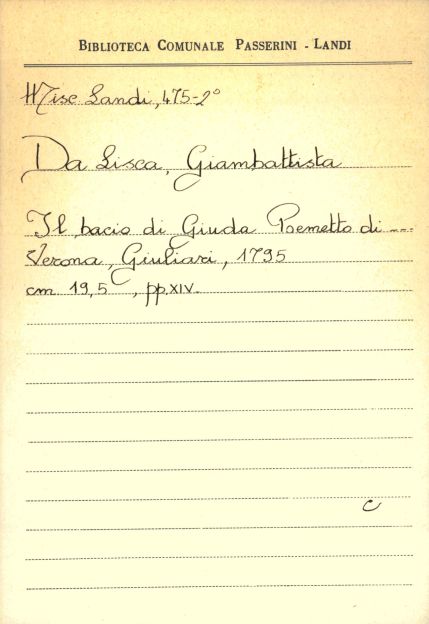 BIBLIOTECA COMUNALE PASSERINI - LANDI
Misc Landi, 475-2°
Da Lisca, Giambattista
Il bacio di Giuda Poemetto di ---
Verona, Giuliari, 1795
cm 19,5 , pp. XIV.
C